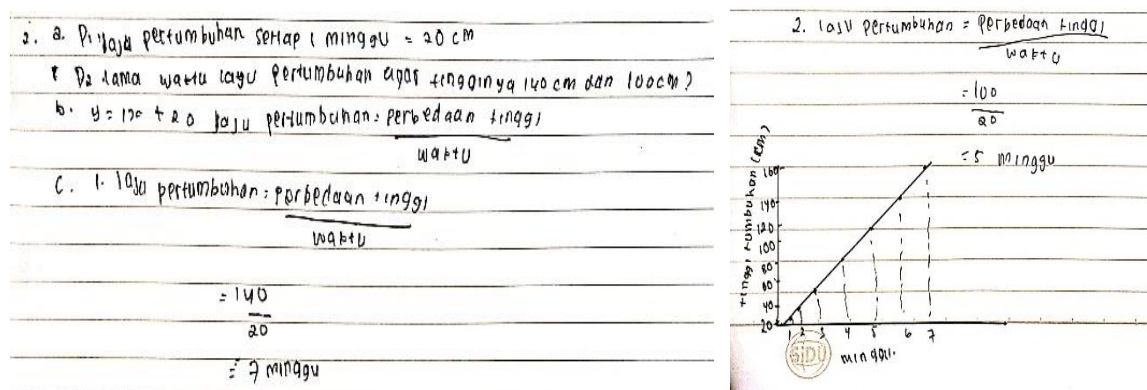 2. a. D1 laju pertumbuhan setiap 1 minggu = 20 cm
D2 lama waktu laju pertumbuhan agar tingginya 140 cm dan 100cm?
b. y = + 20 laju pertumbuhan = perbedaan tinggi
waktu
c. 1. laju pertumbuhan = perbedaan tinggi
waktu
= 140
20
= 7 minggu
2. laju pertumbuhan = perbedaan tinggi
waktu
= 100
20
= 5 minggu
tinggi tumbuhan (cm)
160
140
120
100
80
60
40
20
1 2 3 4 5 6 7
SIDU
minggu.